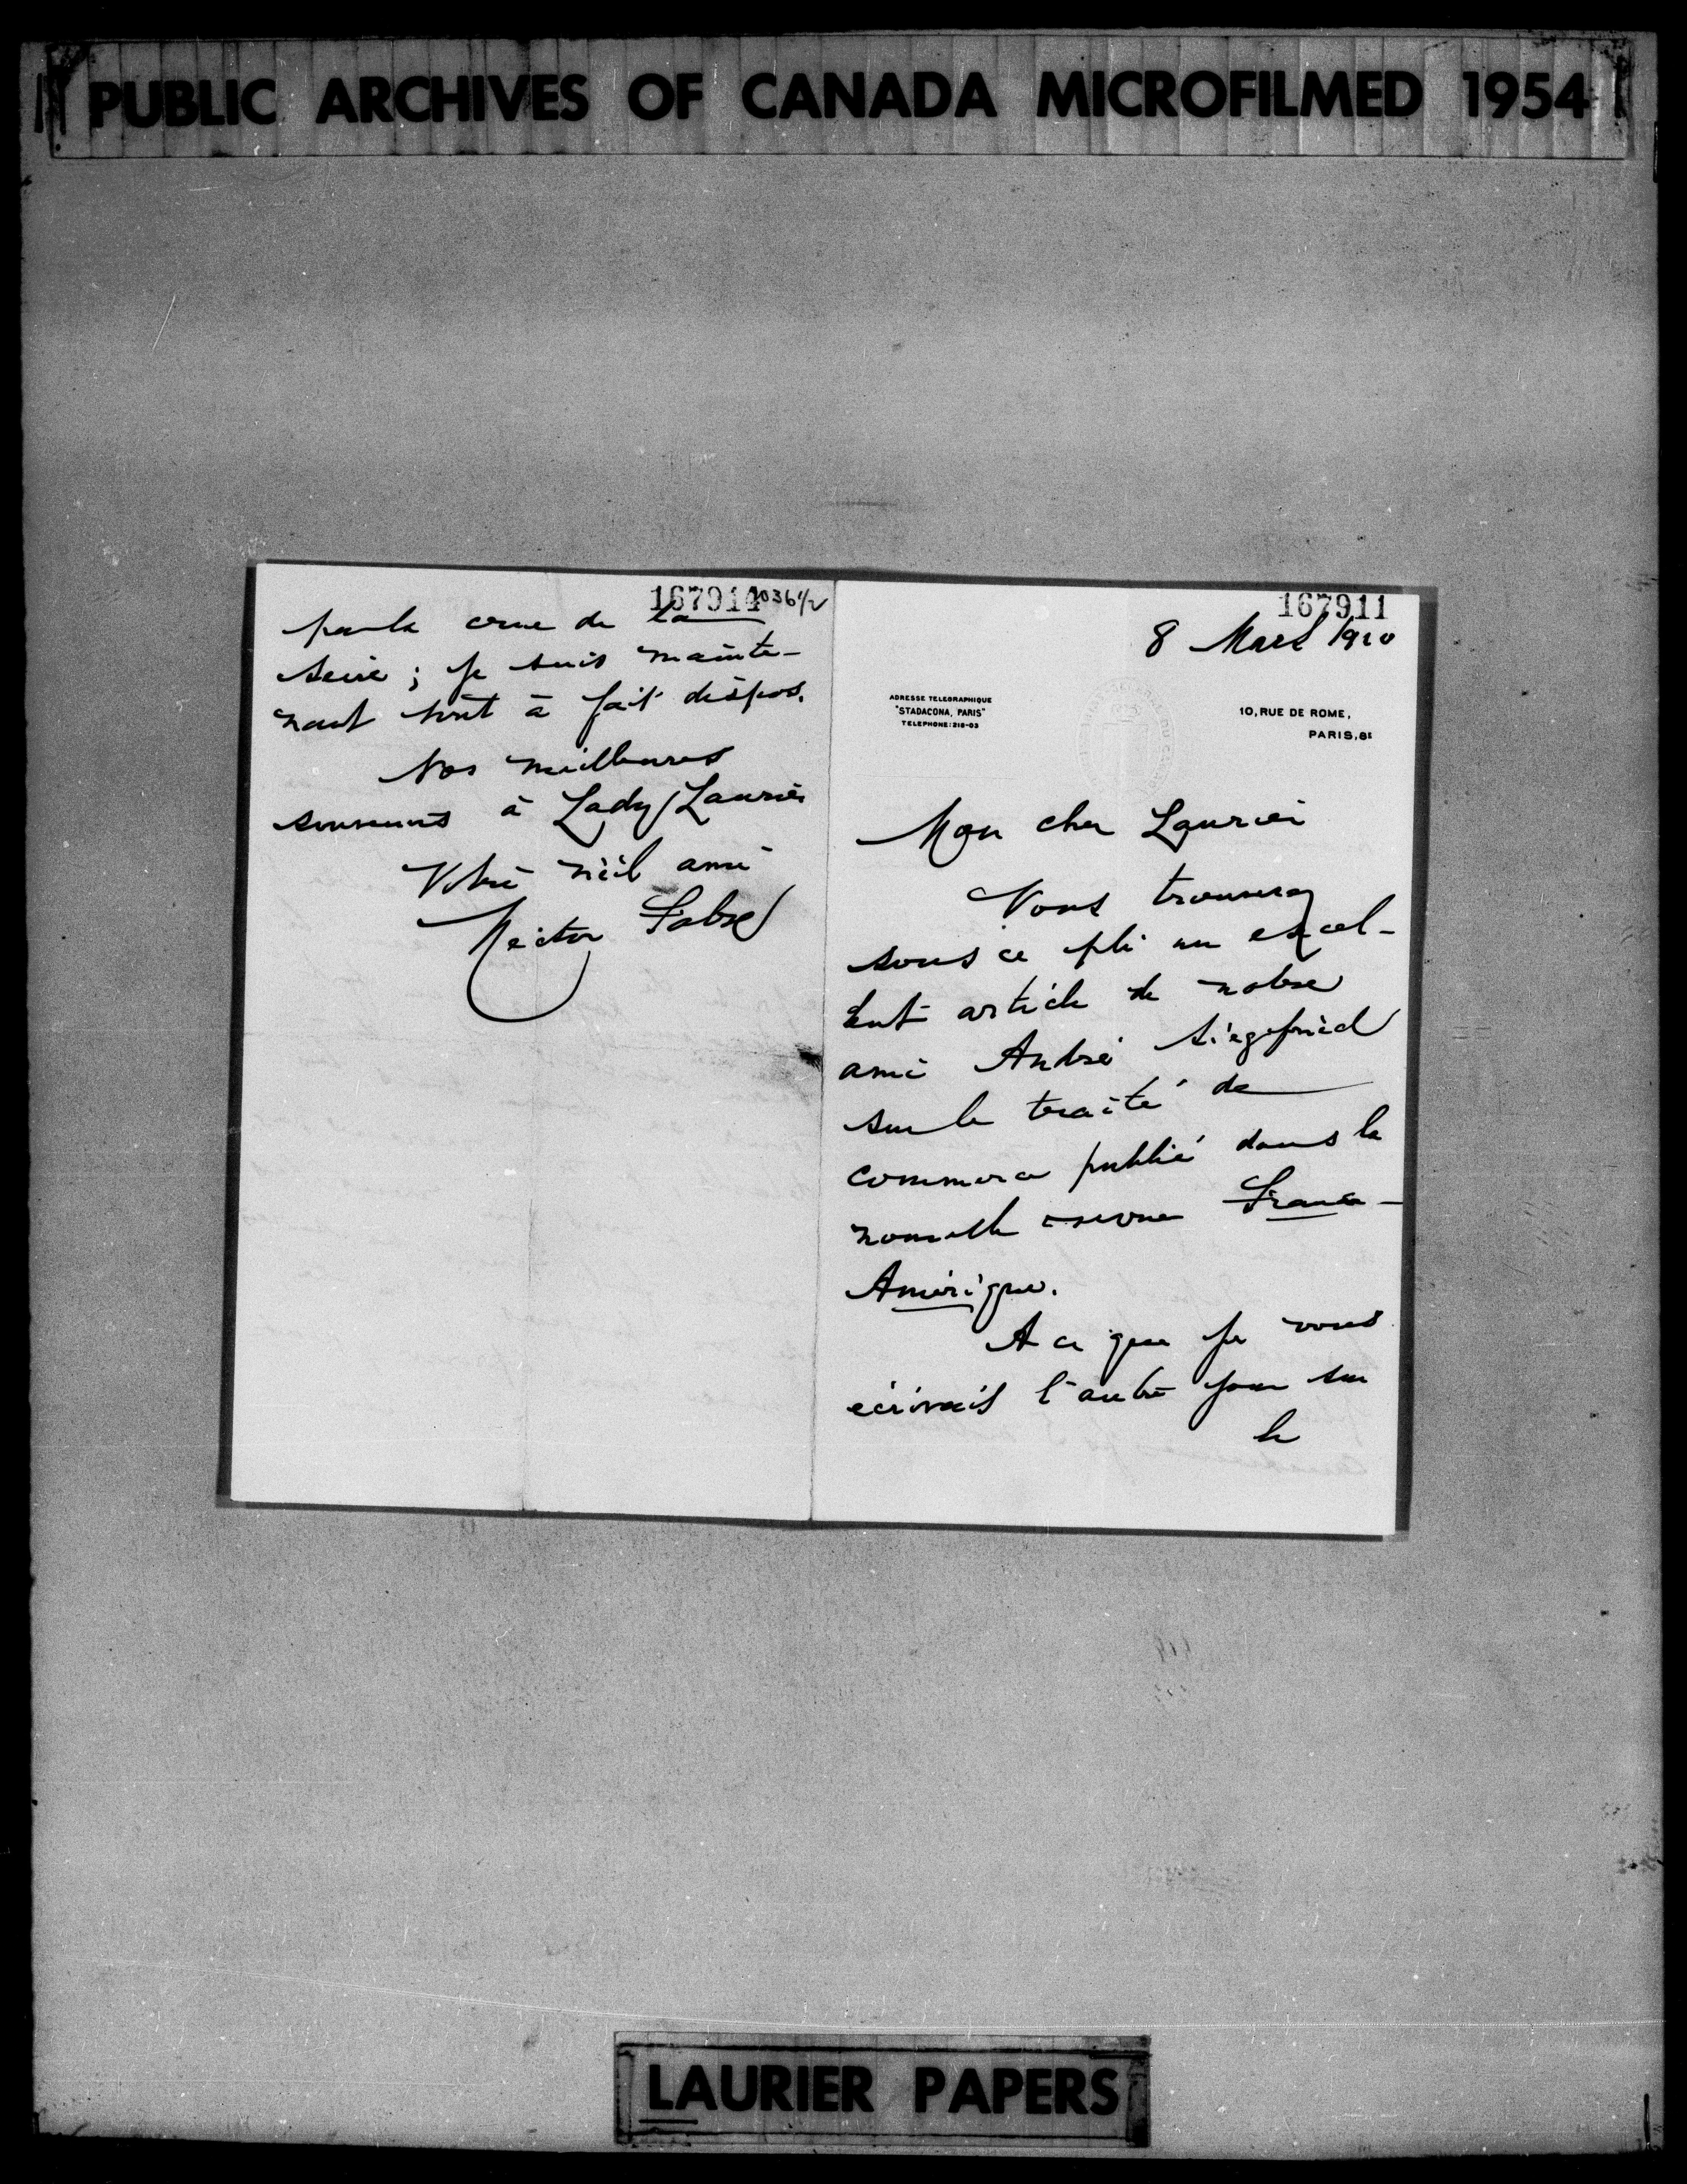 PUBLIC ARCHIVES OF CANADA MICROFILMED 1954
167914 1036 1/2
par la crue de la
Seine ; je suis mainte-
nant tout à fait dispos.
Nos meilleures
souvenirs à Lady Laurier
Votre vieil ami
Hector Fabre
167911
8 Mars 1910
ADRESSE TELEGRAPHIQUE
"STADACONA, PARIS"
TELEPHONE: 218-03
10, RUE DE ROME,
PARIS, 8E
Mon cher Laurier
Vous trouverez
sous ce pli un excel-
lent article de notre
ami André Siegfried
sur le traité de
commerce publié dans la
nouvelle revue France-
Amérique.
A ce que je vous
écrivais l'autre jour sur
le
LAURIER PAPERS